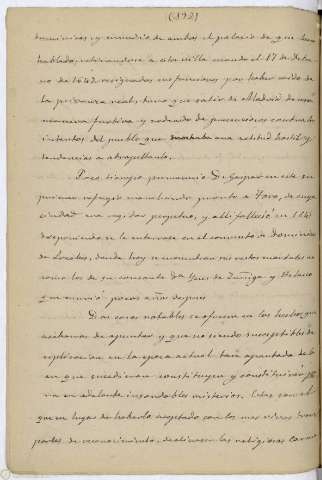 (192)
dominicas, y enmedio de ambos el palacio de que hemos
hablado, retirándose a esta villa cuando el 17 de
de 1642 resignadas sus funciones por haber caido de
la privanza real, tuvo que salir de Madrid de una
manera furtiva y rodeado de precauciones contra los
intentos del pueblo que mostraba una actitud hostil y
tendencias a atropellarlo.
Poco tiempo permaneció D. Gaspar en este su
primer refugio marchando pronto a Toro, de cuya
ciudad era regidor perpetuo, y alli falleció en 1645
disponiendo se le enterrase en el convento de dominicas
de Loeches, donde hoy se encuentran sus restos mortales asi
como los de su consorte Dª Ynes de Zúñiga y Velasco
que murió pocos años despues.
Dos cosas notables se ofrecen en los hechos que
acabamos de apuntar y que no siendo susceptibles de
esplicacion en la época actual tan apartada de la
en que sucedieron constituyen y constituirán
en adelante insondables misterios. Estas son el
que en lugar de haberla aceptado con las mas vivas
partes de reconocimiento, declinasen las religiosas